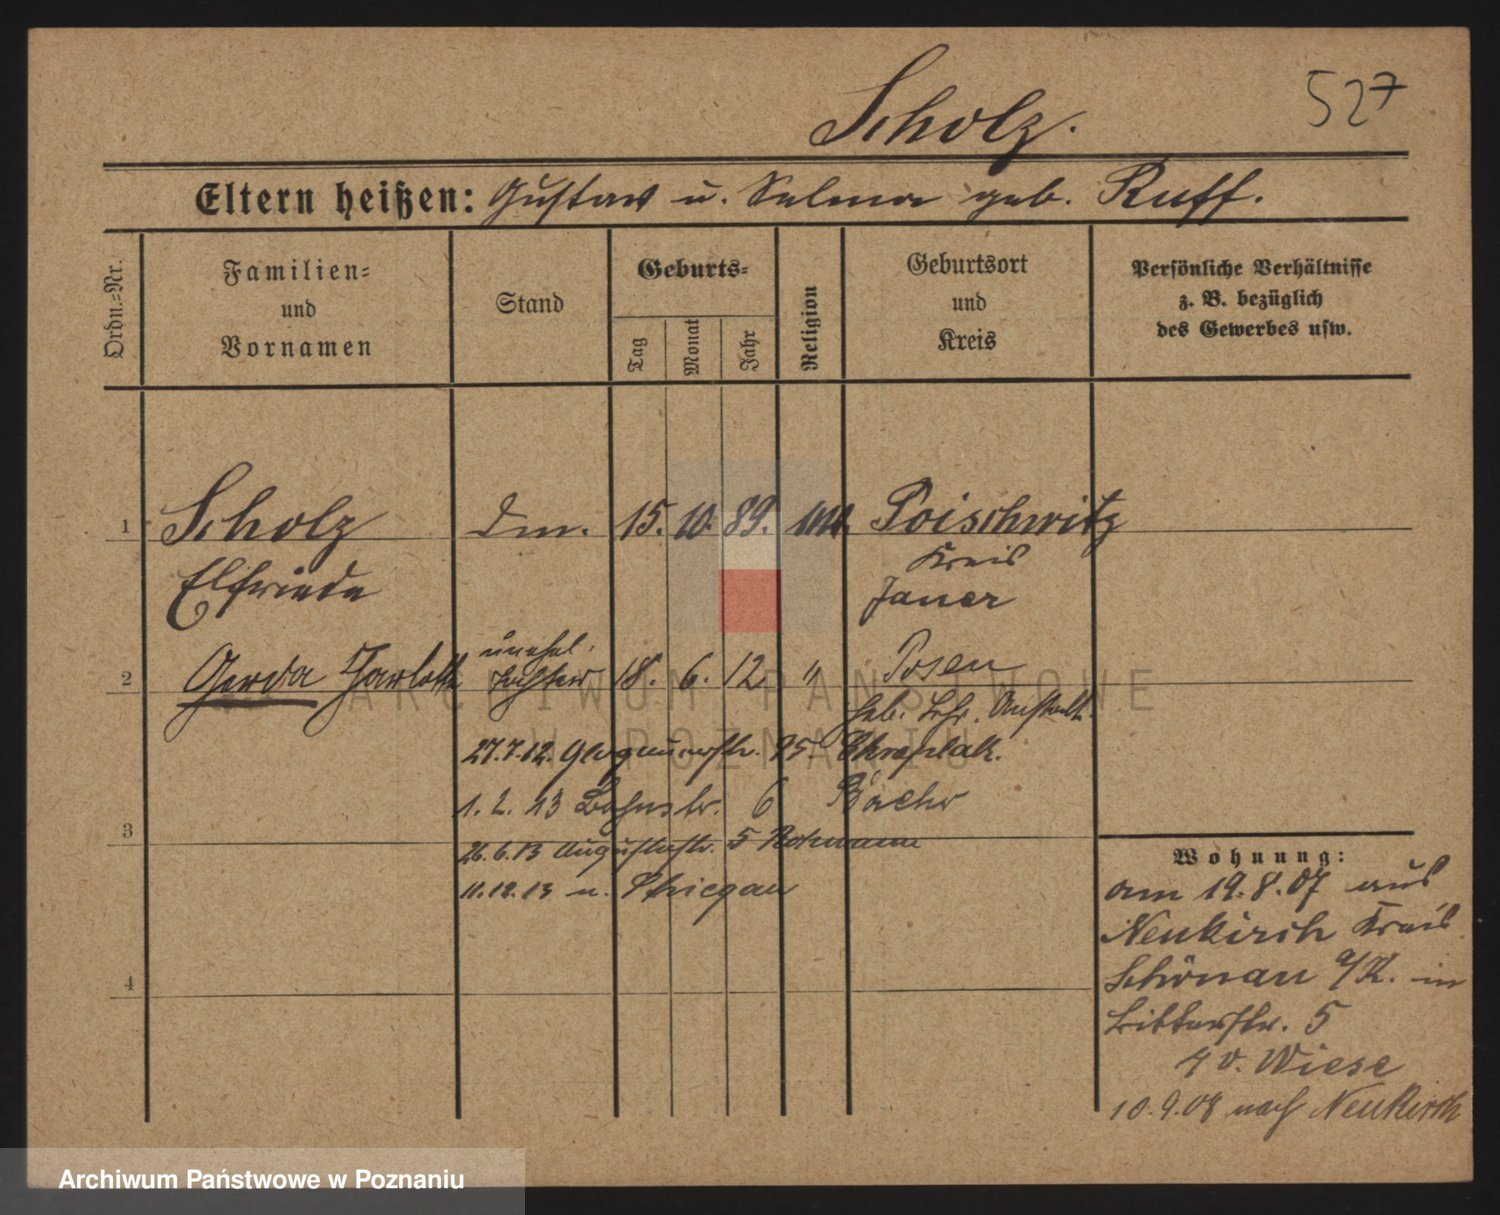 527
Scholz.
Eltern heißen: Gustav u. Selma geb. Ruff.
Ordn.=Nr.
Familien=
und
Vornamen
Stand
Geburts=
Tag
Monat
Jahr
Religion
Geburtsort
und
Kreis
Persönliche Verhältnisse
z. B. bezüglich
des Gewerbes usw.
1 Scholz 15. 10. 89. Poischwitz
Kreis
Elfriede Jauer
unehel.
2 Gerda Tochter 18. 6. 12. " Posen
Heb. Lehr. Anstalt.
27.7.12. Glogauerstr. 95.
1. 2. 13 Bahnstr. 6
3
26.6.13 Augustastr. 5
11.12.13 n. Striegau
4
Wohnung:
am 19.8.07 aus
Neukirch Kreis
Schönau a/K. in
Ritterstr. 5
v. Wiese
10.9.08 nach Neukirch
ARCHIWUM PAŃSTWOWE
W POZNANIU
Archiwum Państwowe w Poznaniu